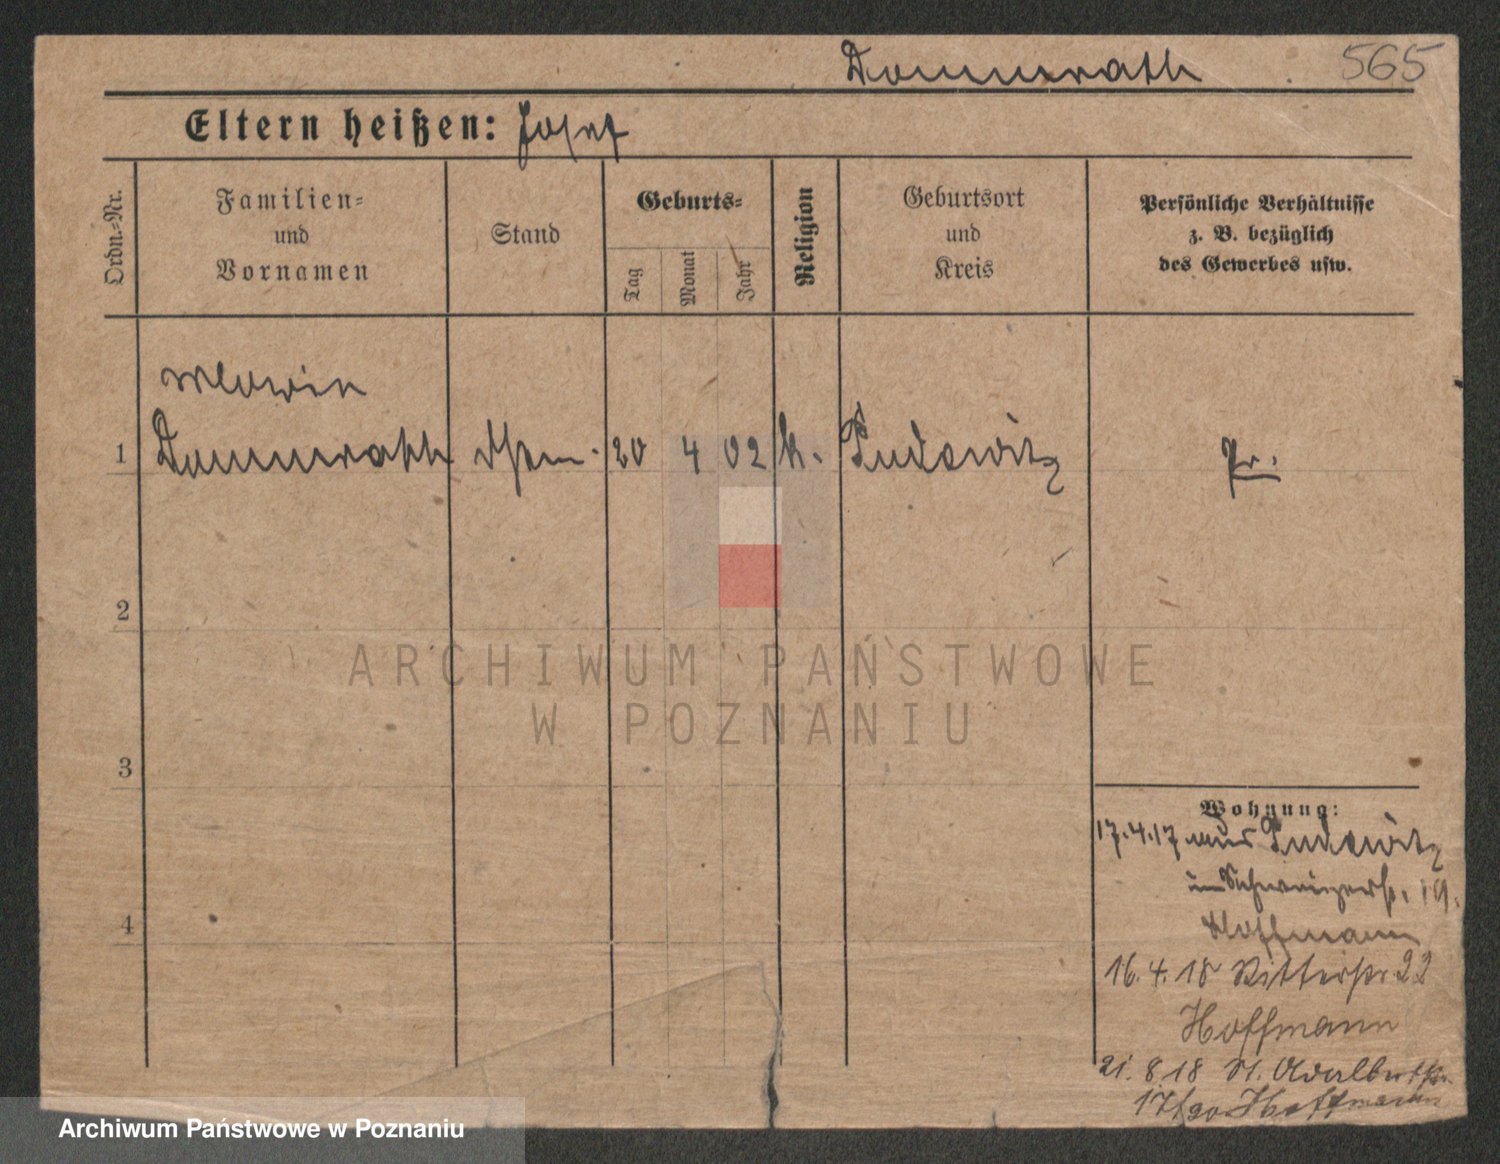 Dommrath 565
Eltern heißen: Josef
Ordn.-Nr.
Familien-
und
Vornamen
Stand
Geburts-
Tag
Monat
Jahr
Religion
Geburtsort
und
Kreis
Persönliche Verhältnisse
z. B. bezüglich
des Gewerbes usw.
1 Dommrath 20 4 02 k. Pudewitz Pr.
2
3
4
Wohnung:
17.4.17 aus Pudewitz
19.
Hoffmann
16.4.18 Ritterstr 22
Hoffmann
21.8.18 St. Adalbertstr.
17/20 Hoffmann
ARCHIWUM PAŃSTWOWE
W POZNANIU
Archiwum Państwowe w Poznaniu